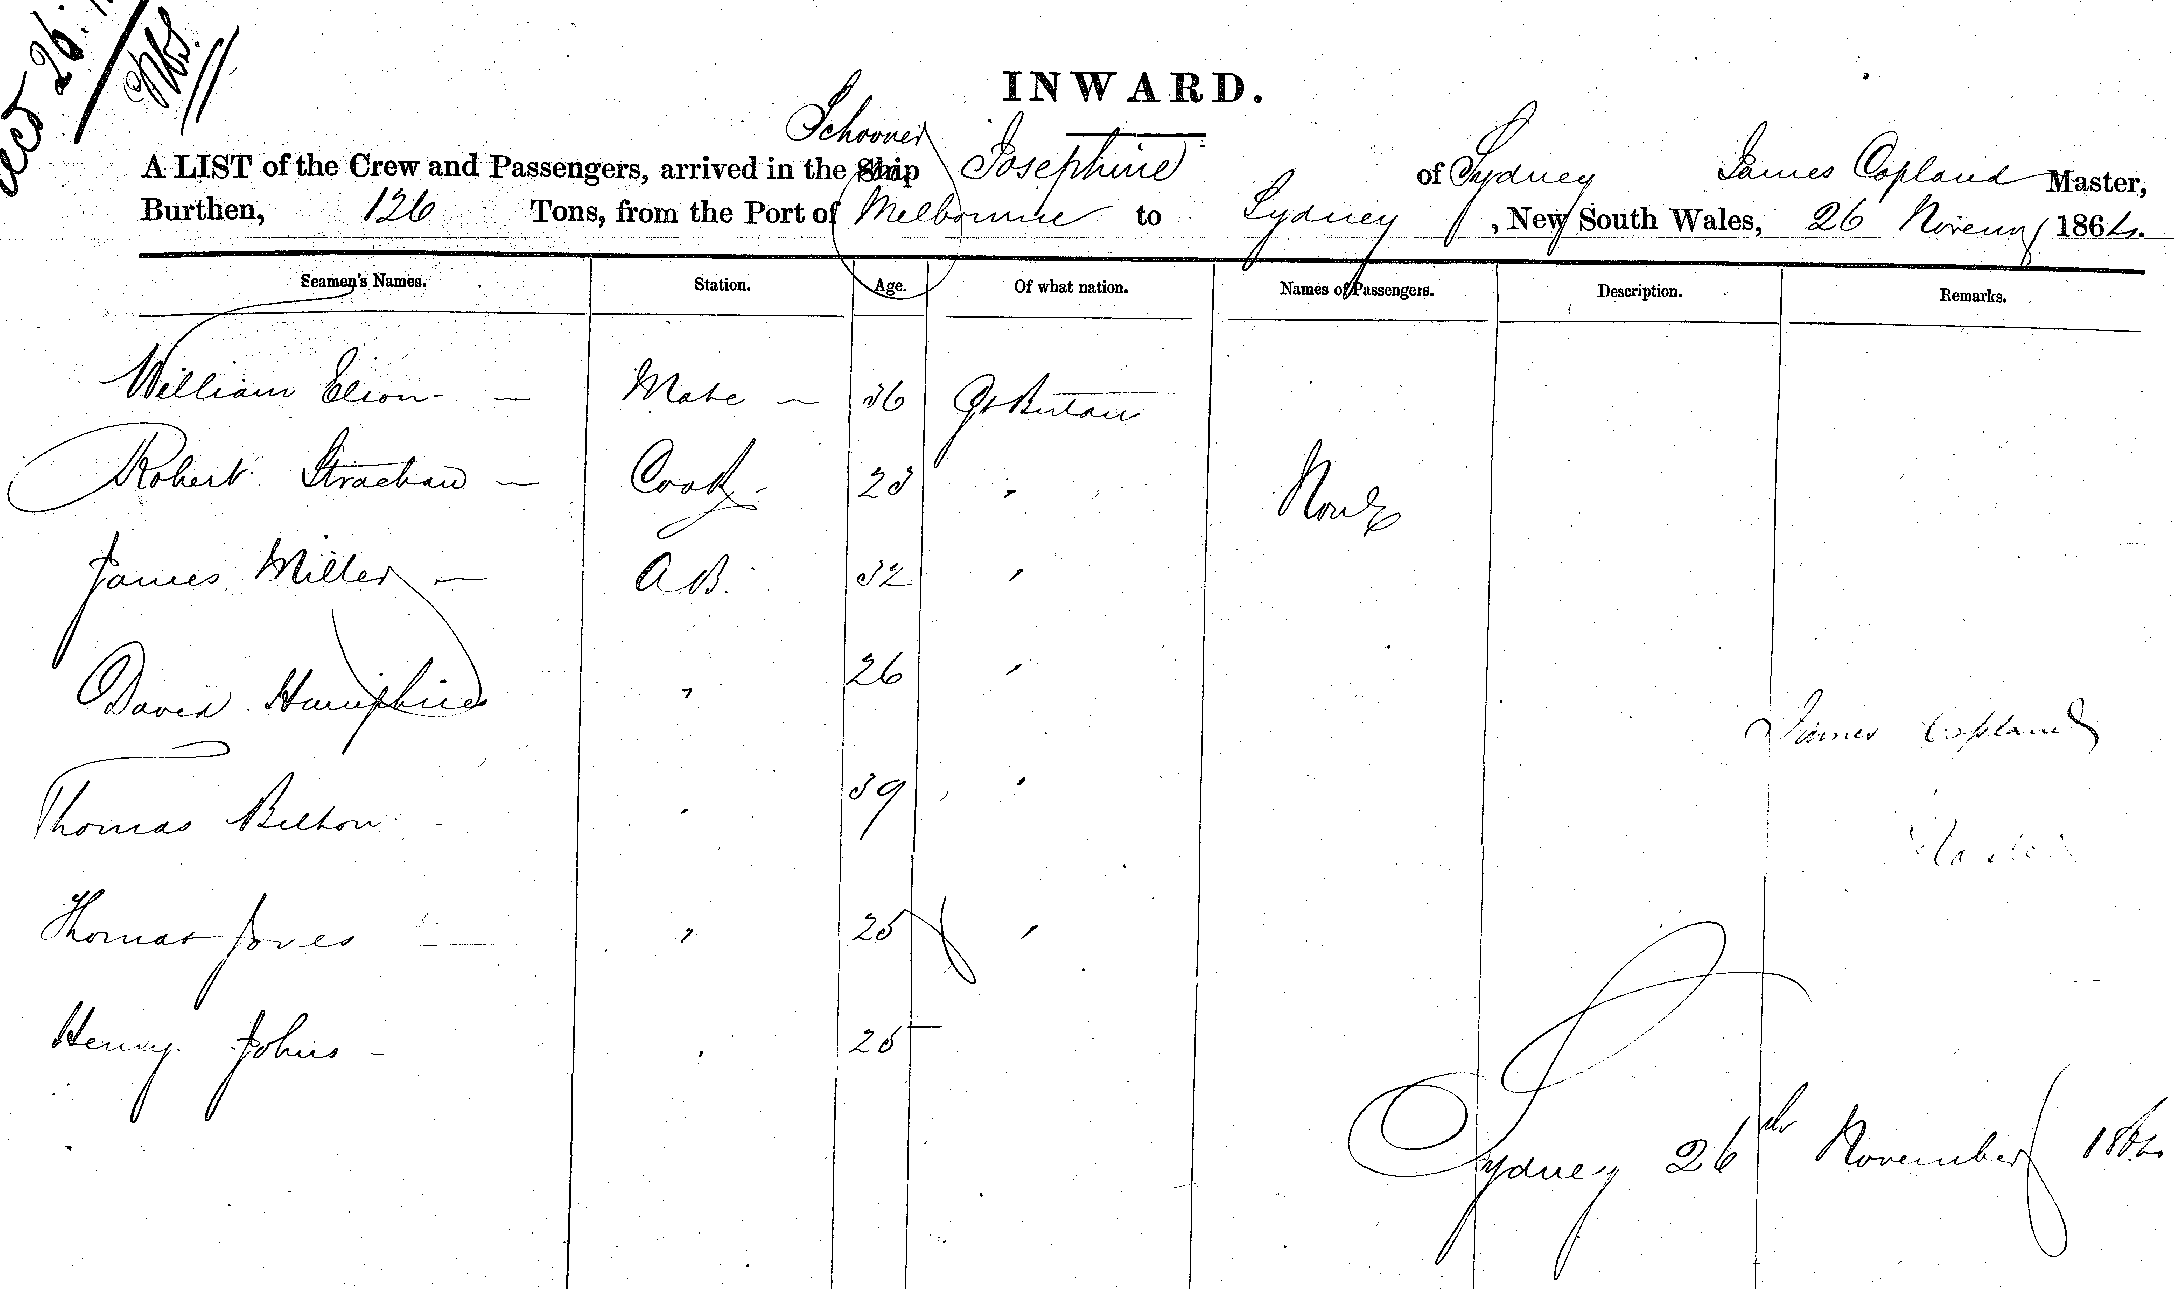 26
INWARD.
Schooner
A LIST of the Crew and Passengers, arrived in the Ship Josephine of Sydney James Copland Master,
Burthen, 126 Tons, from the Port of Melbourne to Sydney, New South Wales, 26 Novem 1864.
Seamen's Names. Station. Age. Of what nation. Names of Passengers. Description. Remarks.
William Elion - Mate - 36 Gt Britain
Robert Strachan - Cook - 23 " None
James Miller - A B. 32 "
David Humphries " 26 "
James Copland
Thomas Bilton " 39 "
Master
Thomas Jones - " 25 "
Henry Johns - " 25
Sydney 26th November 1864